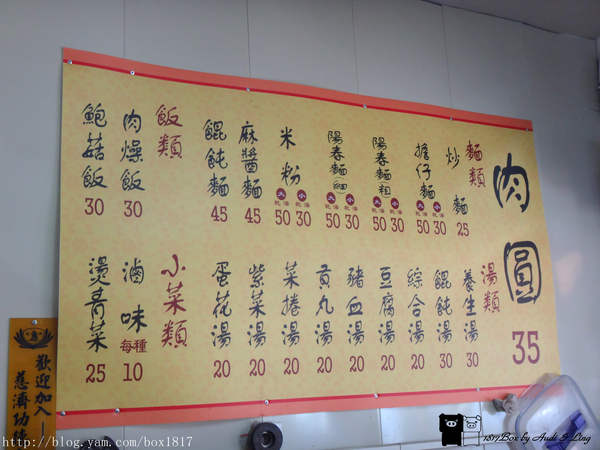 肉圓 35
麵類
炒麵 25
擔仔麵 大 乾湯 50 小 乾湯 30
陽春麵粗 大 乾湯 50 小 乾湯 30
陽春麵細 大 乾湯 50 小 乾湯 30
米粉 大 乾湯 50 小 乾湯 30
麻醬麵 45
餛飩麵 45
飯類
肉燥飯 30
鮑菇飯 30
湯類
養生湯 30
餛飩湯 30
綜合湯 20
豆腐湯 20
豬血湯 20
貢丸湯 20
菜捲湯 20
紫菜湯 20
蛋花湯 20
小菜類
滷味 每種 10
燙青菜 25
歡迎加入
慈濟功德
http://blog.yam.com/box1817
1817Box by Audi & Ling